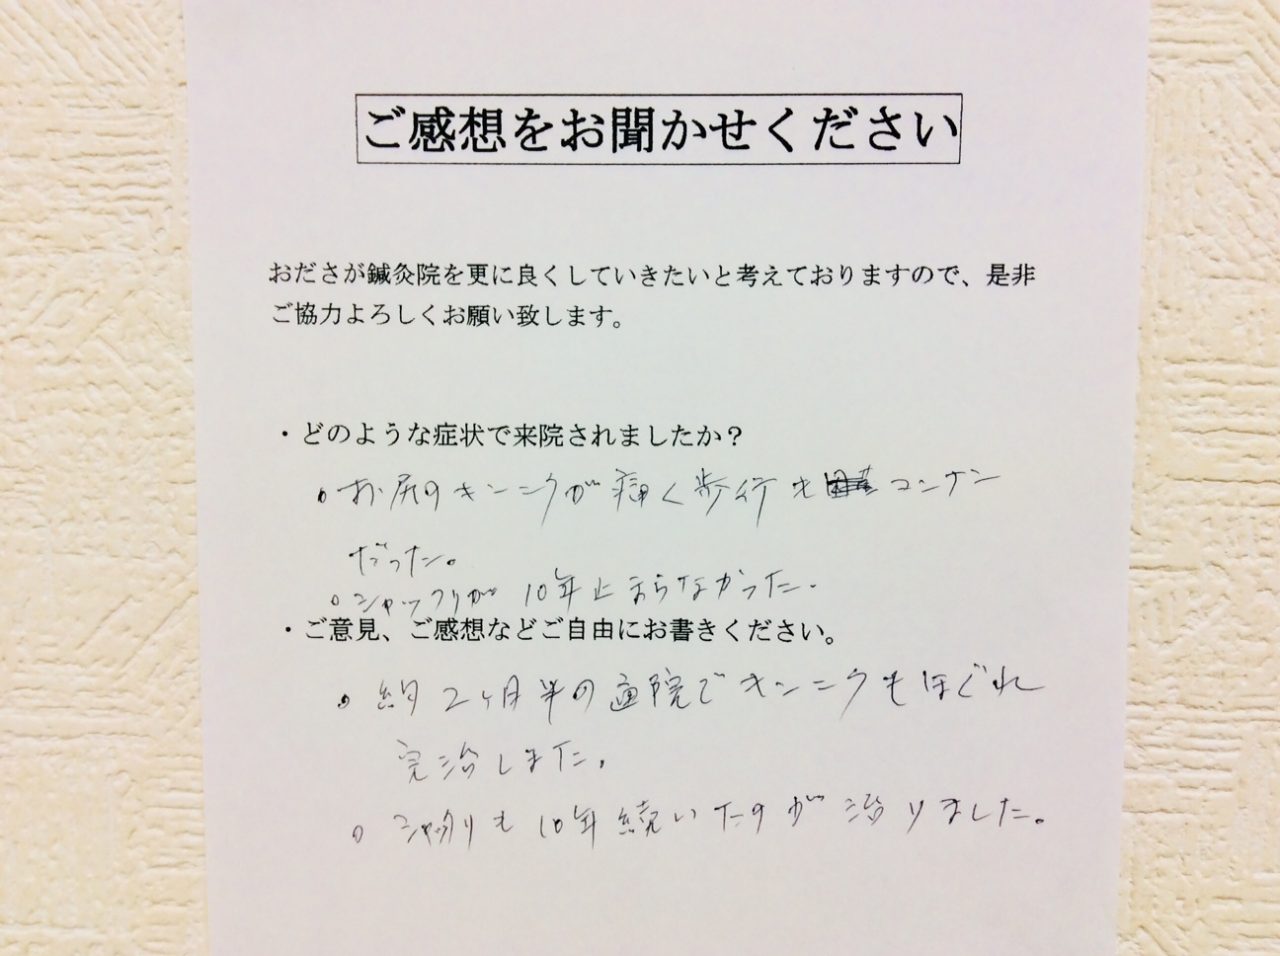 ご感想をお聞かせください
おださが鍼灸院を更に良くしていきたいと考えておりますので、是非
ご協力よろしくお願い致します。
・どのような症状で来院されましたか？
。お尻のキンニクが痛く歩行もコンナン
だった。
。シャックリが10年止まらなかった。
・ご意見、ご感想などご自由にお書きください。
。約2ヶ月半の通院でキンニクもほぐれ
完治しました。
。シャックリも10年続いたのが治りました。